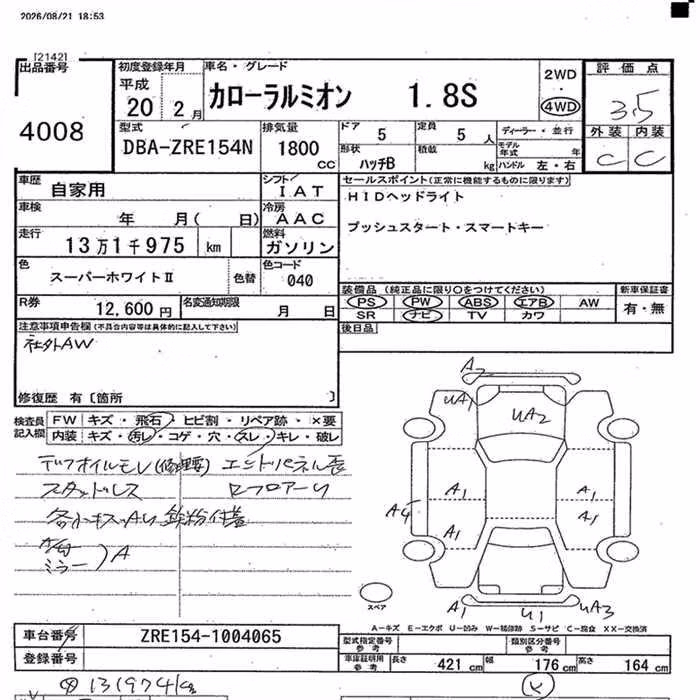 2026/08/21 18:53
[2142]
出品番号
4008
初度登録年月
平成
20年 2月
車名・グレード
カローラルミオン 1.8S
2WD
・
4WD
評価点
3.5
外装 内装
C C
型式
DBA-ZRE154N
排気量
1800 CC
ドア 5
定員 5 人
ディーラー・並行
形状
ハッチB
積載 kg
モデル年式 年
ハンドル 左・右
車歴
自家用
シフト
IAT
車検
年 月( 日)
冷房
AAC
走行
13万1千975 km
燃料
ガソリン
色
スーパーホワイトⅡ
色替
色コード
040
R券
12,600円
名変通知期限
月 日
セールスポイント(正常に機能するものに限ります)
HIDヘッドライト
プッシュスタート・スマートキー
装備品 (純正品に限り○をつけてください)
PS PW ABS エアB AW
SR ナビ TV カワ
新車保証書
有・無
後日品
注意事項申告欄(不具合内容等は具体的に記入して下さい)
社外AW
修復歴 有〔箇所 〕
検査員記入欄
FW キズ・飛石・ヒビ割・リペア跡・×要
内装 キズ・汚レ・コゲ・穴・スレ・キレ・破レ
デフオイルモレ(修理要)
スタッドレス
各小キズ
鉄粉付着
ミラー
A
A2
UA1
UA2
A1
A1
A1
A1
A4
A1
U1
UA3
スペア
A-キズ E-エクボ U-凹み W-補修跡 S-サビ C-腐食 XX-交換済
車台番号
ZRE154-1004065
登録番号
型式指定番号
参考
類別区分番号
参考
車庫証明用
参考
長さ 421 cm 幅 176 cm 高さ 164 cm
131974km